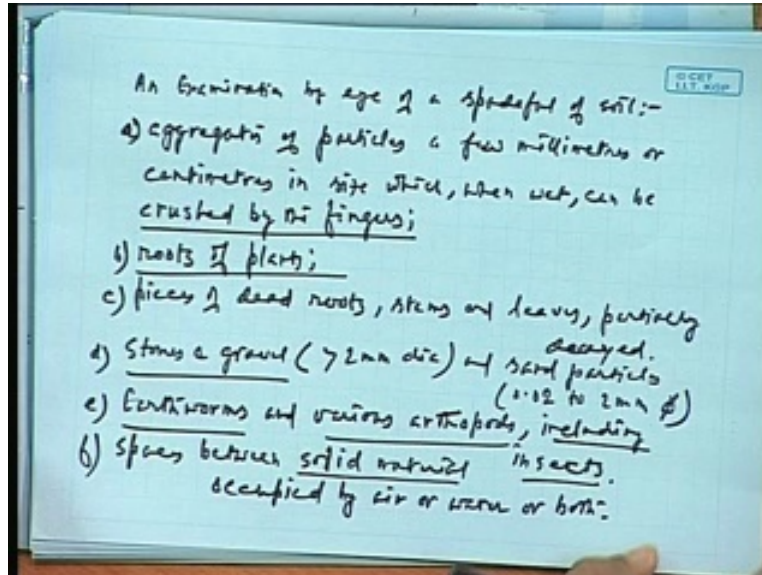 © CET
I.I.T. KGP
An Examination by eye of a spadeful of soil:-
a) aggregates of particles a few millimetres or
centimetres in size which, when wet, can be
crushed by the fingers;
b) roots of plants;
c) pieces of dead roots, stems and leaves, partially
decayed.
d) Stones & gravel (> 2mm dia) and sand particles
(0.02 to 2mm ϕ)
e) Earthworms and various arthopods, including
insects.
f) Spaces between solid material
occupied by air or water or both.